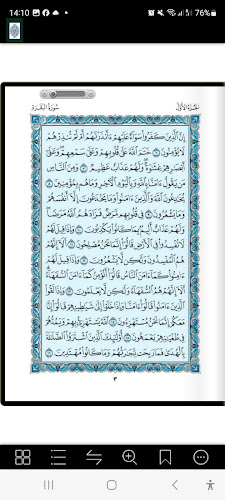 14:10
76%
سورة البقرة
الجزء الأول
إن الذين كفروا سواء عليهم ءأنذرتهم أم لم تنذرهم
لا يؤمنون ٦ ختم الله على قلوبهم وعلى سمعهم وعلى
أبصرهم غشوة ولهم عذاب عظيم ٧ ومن الناس
من يقول ءامنا بالله وباليوم الءاخر وما هم بمؤمنين ٨
يخدعون الله والذين ءامنوا وما يخدعون إلا أنفسهم
وما يشعرون ٩ في قلوبهم مرض فزادهم الله مرضا
ولهم عذاب أليم بما كانوا يكذبون ١٠ وإذا قيل لهم
لا تفسدوا في الأرض قالوا إنما نحن مصلحون ١١ ألا إنهم
هم المفسدون ولكن لا يشعرون ١٢ وإذا قيل لهم
ءامنوا كما ءامن الناس قالوا أنؤمن كما ءامن السفهاء
ألا إنهم هم السفهاء ولكن لا يعلمون ١٣ وإذا لقوا
الذين ءامنوا قالوا ءامنا وإذا خلوا إلى شيطينهم قالوا إنا
معكم إنما نحن مستهزءون ١٤ الله يستهزئ بهم ويمدهم
في طغينهم يعمهون ١٥ أولئك الذين اشتروا الضللة
بالهدى فما ربحت تجرتهم وما كانوا مهتدين ١٦
٣